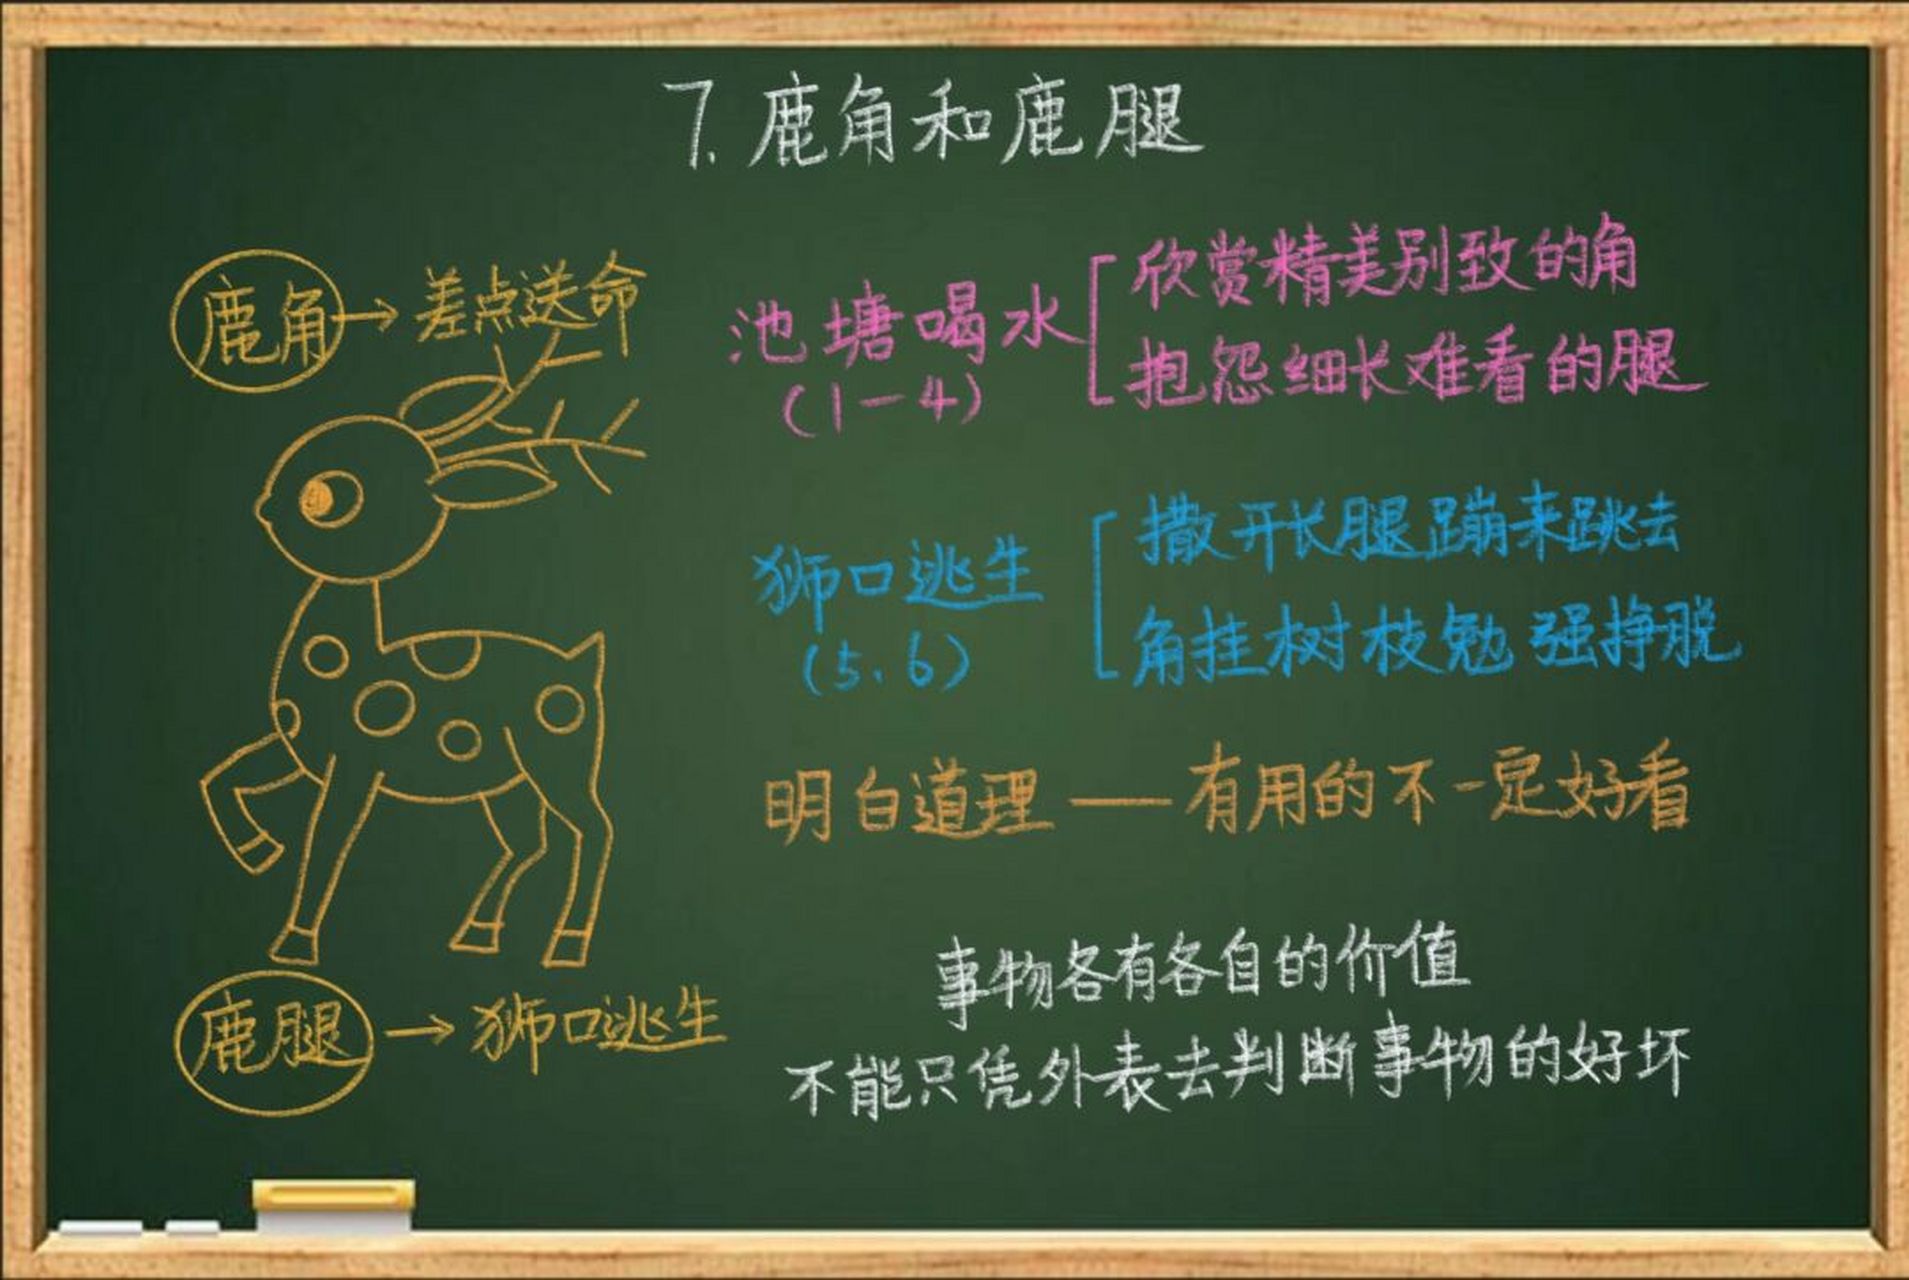 7.鹿角和鹿腿
鹿角→差点送命
池塘喝水
(1—4)
欣赏精美别致的角
抱怨细长难看的腿
狮口逃生
(5、6)
撒开长腿蹦来跳去
角挂树枝勉强挣脱
明白道理——有用的不一定好看
鹿腿→狮口逃生
事物各有各自的价值
不能只凭外表去判断事物的好坏